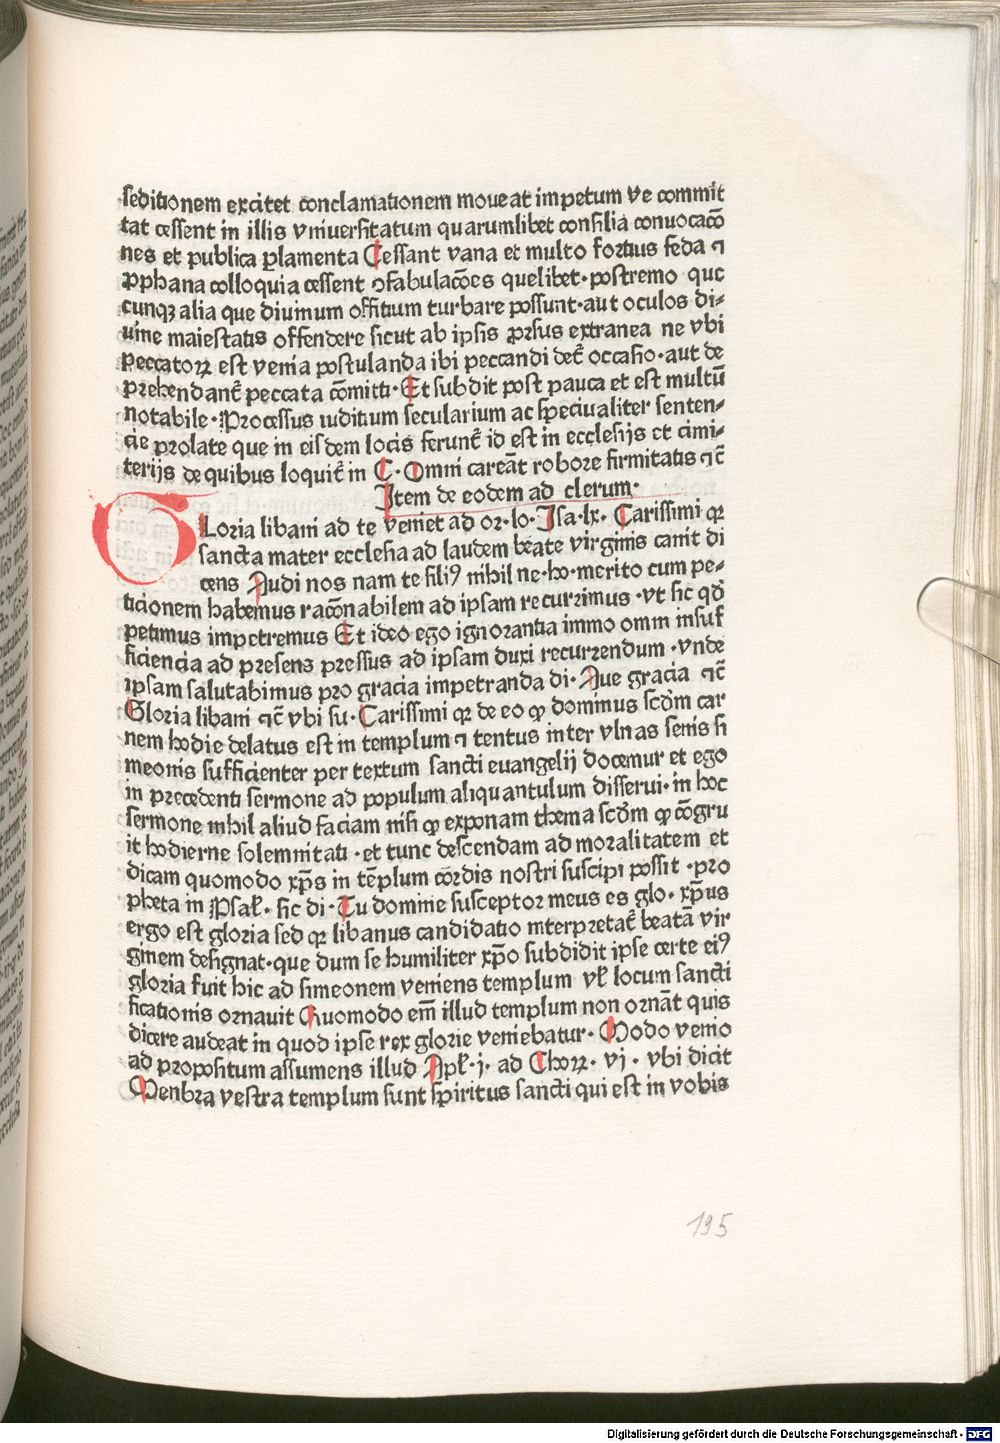 seditionem excitet conclamationem moueat impetum ve committ
tat cessent in illis vniuersitatum quarumlibet consilia conuocacō
nes et publica ꝑlamenta Cessant vana et multo fortius feda ⁊
ꝓphana colloquia cessent ↄfabulacōes quelibet·postremo que
cunqꝫ alia que diuinum offitium turbare possunt·aut oculos di⸗
uine maiestatis offendere sicut ab ipsis ꝓrsus extranea ne vbi
peccatoꝝ est venia postulanda ibi peccandi det̄ occasio·aut de
prehendant̄ peccata cōmitti·Et subdit post pauca et est multū
notabile·Processus iuditum secularium ac speciualiter senten⸗
cie prolate que in eisdem locis ferunt̄ id est in ecclesijs et cimi⸗
terijs de quibus loquit̄ in C·Omni careāt robore firmitatis ⁊c̄
Item de eodem ad clerum·
GLoria libani ad te veniet ad oz·lo·Isa·lx·Carissimi qꝛ
sancta mater ecclesia ad laudem beate virginis canit di
cens Audi nos nam te filiꝰ nihil ne·ho·merito cum pe⸗
ticionem habemus racōnabilem ad ipsam recurrimus·vt sic qd̄
petimus impetremus Et ideo ego ignorantia immo omni insuf
ficiencia ad presens pressus ad ipsam duxi recurrendum·vnde
ipsam salutabimus pro gracia impetranda di·Aue gracia ⁊c̄
Gloria libani ⁊c̄ vbi su·Carissimi qꝛ de eo ꝙ dominus scd̄m car
nem hodie delatus est in templum ⁊ tentus inter vlnas senis si
meonis sufficienter per textum sancti euangelij docemur et ego
in precedenti sermone ad populum aliquantulum disserui·in hoc
sermone nihil aliud faciam nisi ꝙ exponam thema scd̄m ꝙ cōgru
it hodierne solemnitati·et tunc descendam ad moralitatem et
dicam quomodo xp̄s in tēplum cōrdis nostri suscipi possit·pro
pheta in Psal̄·sic di·Tu domine susceptor meus es glo·xp̄us
ergo est gloria sed qꝛ libanus candidatio interpretat̄ beatā vir
ginem designat·que dum se humiliter xp̄o subdidit ipse certe eiꝰ
gloria fuit hic ad simeonem veniens templum vl̄ locum sancti
ficationis ornauit Quomodo em̄ illud templum non ornāt quis
dicere audeat in quod ipse rex glorie veniebatur·Modo venio
ad propositum assumens illud Apl̄·j·ad Choꝝ·vj·vbi dicit
Menbra vestra templum sunt spiritus sancti qui est in vobis
195
Digitalisierung gefördert durch die Deutsche Forschungsgemeinschaft - DFG